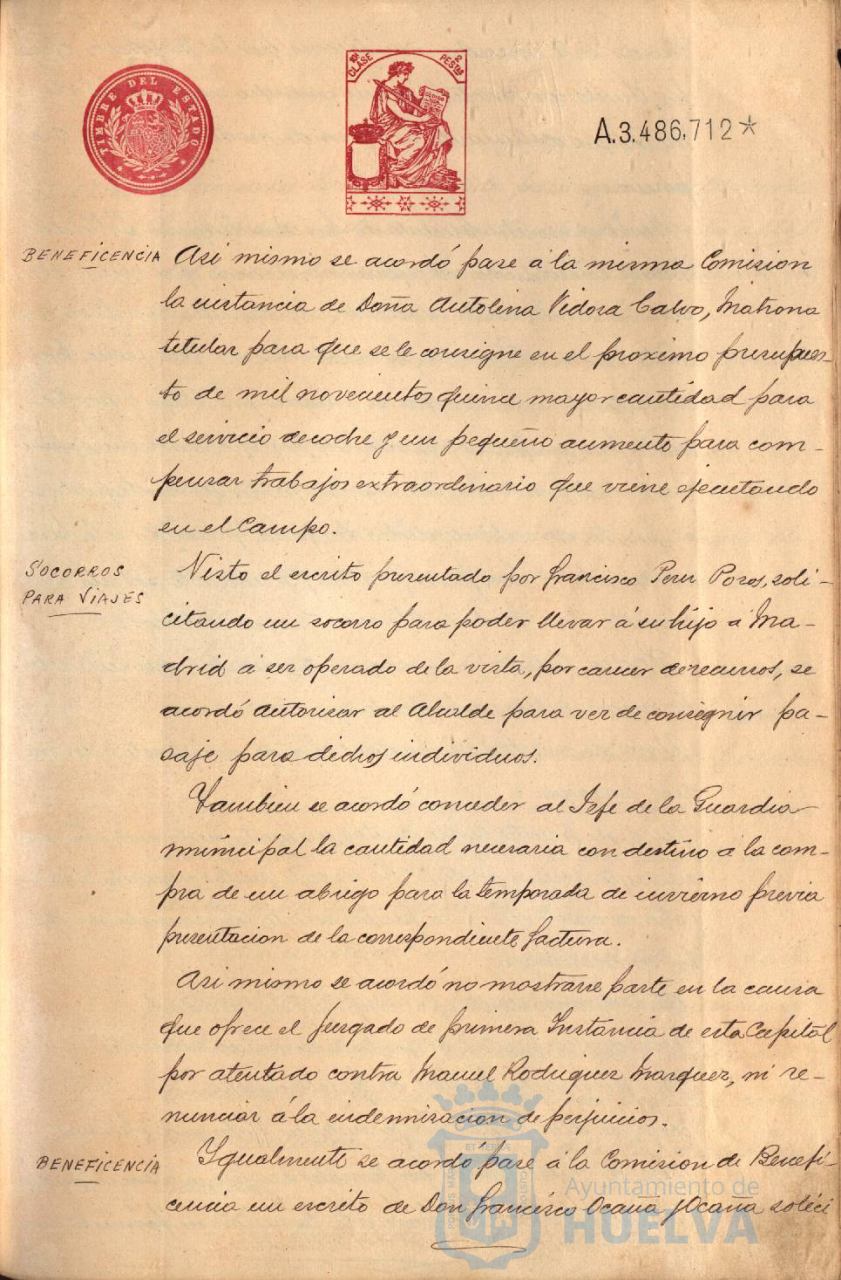 TIMBRE DEL ESTADO
10ª CLASE 2 PESTAS
A.3.486,712*
BENEFICENCIA
Asi mismo se acordó pase á la misma Comision
la instancia de Doña Antolina Vidosa Calvo, Matrona
titular para que se le consigne en el proximo presupues-
to de mil novecientos quince mayor cantidad para
el servicio de coche y un pequeño aumento para com-
pensar trabajos extraordinario que viene ejecutando
en el Campo.
SOCORROS
PARA VIAJES
Visto el escrito presentado por Francisco Perez Poros, soli-
citando un socorro para poder llevar á su hijo á Ma-
drid á ser operado de la vista, por carecer de recursos, se
acordó autorisar al Alcalde para ver de conseguir pa-
saje para dichos individuos.
Tambien se acordó conceder al Jefe de la Guardia
municipal la cantidad necesaria con destino á la com-
pra de un abrigo para la temporada de invierno previa
presentacion de la correspondiente factura.
Asi mismo se acordó no mostrarse parte en la causa
que ofrece el Jusgado de primera Instancia de esta Capital
por atentado contra Manuel Rodriguez Marquez, ni re-
nunciar á la indemnisacion de perjuicios.
BENEFICENCIA
Igualmente se acordó pase á la Comision de Benefi-
cencia un escrito de Don Francisco Ocaña y Ocaña solici
Ayuntamiento de
HUELVA